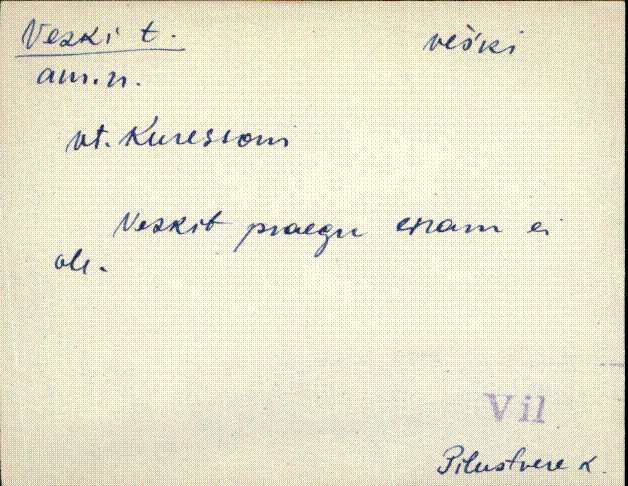 Veski t. veski
am.n.
vt. Kuressoni
Veskit praegu enam ei
ole.
Vil
Pilustvere k.